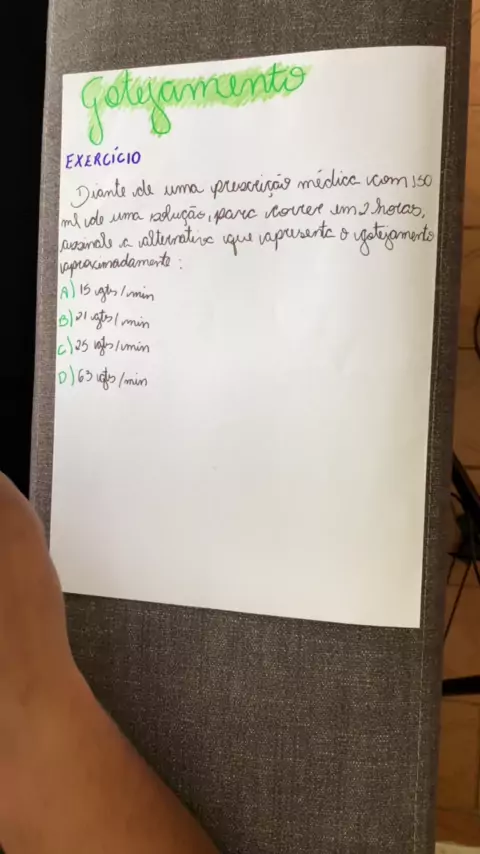 Gotejamento
EXERCÍCIO
Diante de uma prescrição médica com 150
ml de uma solução, para correr em 2 horas,
assinale a alternativa que apresenta o gotejamento
aproximadamente:
A) 15 gts/min
B) 21 gts/min
C) 25 gts/min
D) 63 gts/min